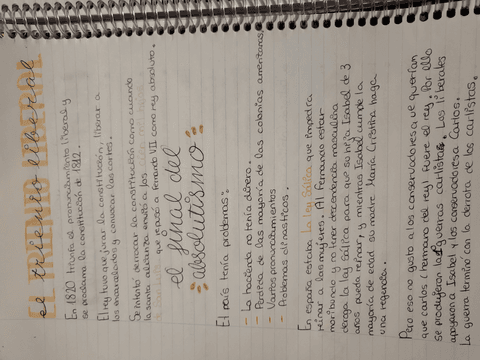 EL TRIENIO LIBERAL
el trienio liberal
En 1820 triunfa el pronunciamiento liberal y
se proclama la constitución de 1812.
El rey tuvo que jurar la constitución, liberar a
los encarcelados y convocar las cortes.
Se intento derrocar la constitución como cuando
la santa alianza envió a los
que repuso a Fernando VII como rey absoluto.
el final del
"absolutismo"
El país tenía problemas:
- La hacienda no tenía dinero.
- Perdida de las mayoría de las colonias americanas,
- Varios pronunciamientos
- Problemas dinasticos.
En españa estaba La ley Sálica que impedía
reinar a las mujeres. Al Fernando estar
moribundo y no tener descendencia masculina
deroga la ley Sálica para que su hija Isabel de 3
años pueda reinar, y mientras Isabel cumple la
mayoría de edad su madre María Cristina haga
una regencia.
Pero eso no gusto a los conservadores que querían
que carlos (hermano del rey) fuere el rey. Por ello
se produjeron las guerras carlistas. Los liberales
apoyaron a Isabel y los conservadores a Carlos.
La guerra termino con la derrota de los carlistas.